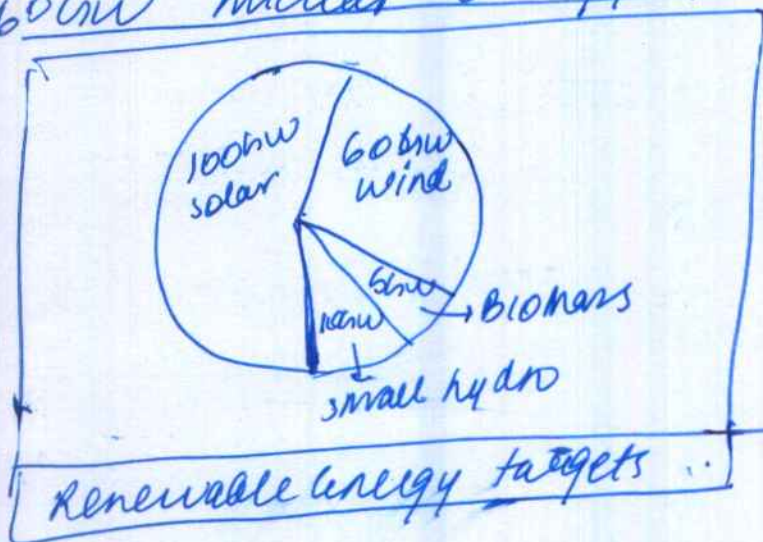 60GW nuclear
100GW
solar
60GW
wind
5GW
10GW
→ Biomass
small hydro
Renewable energy targets ..